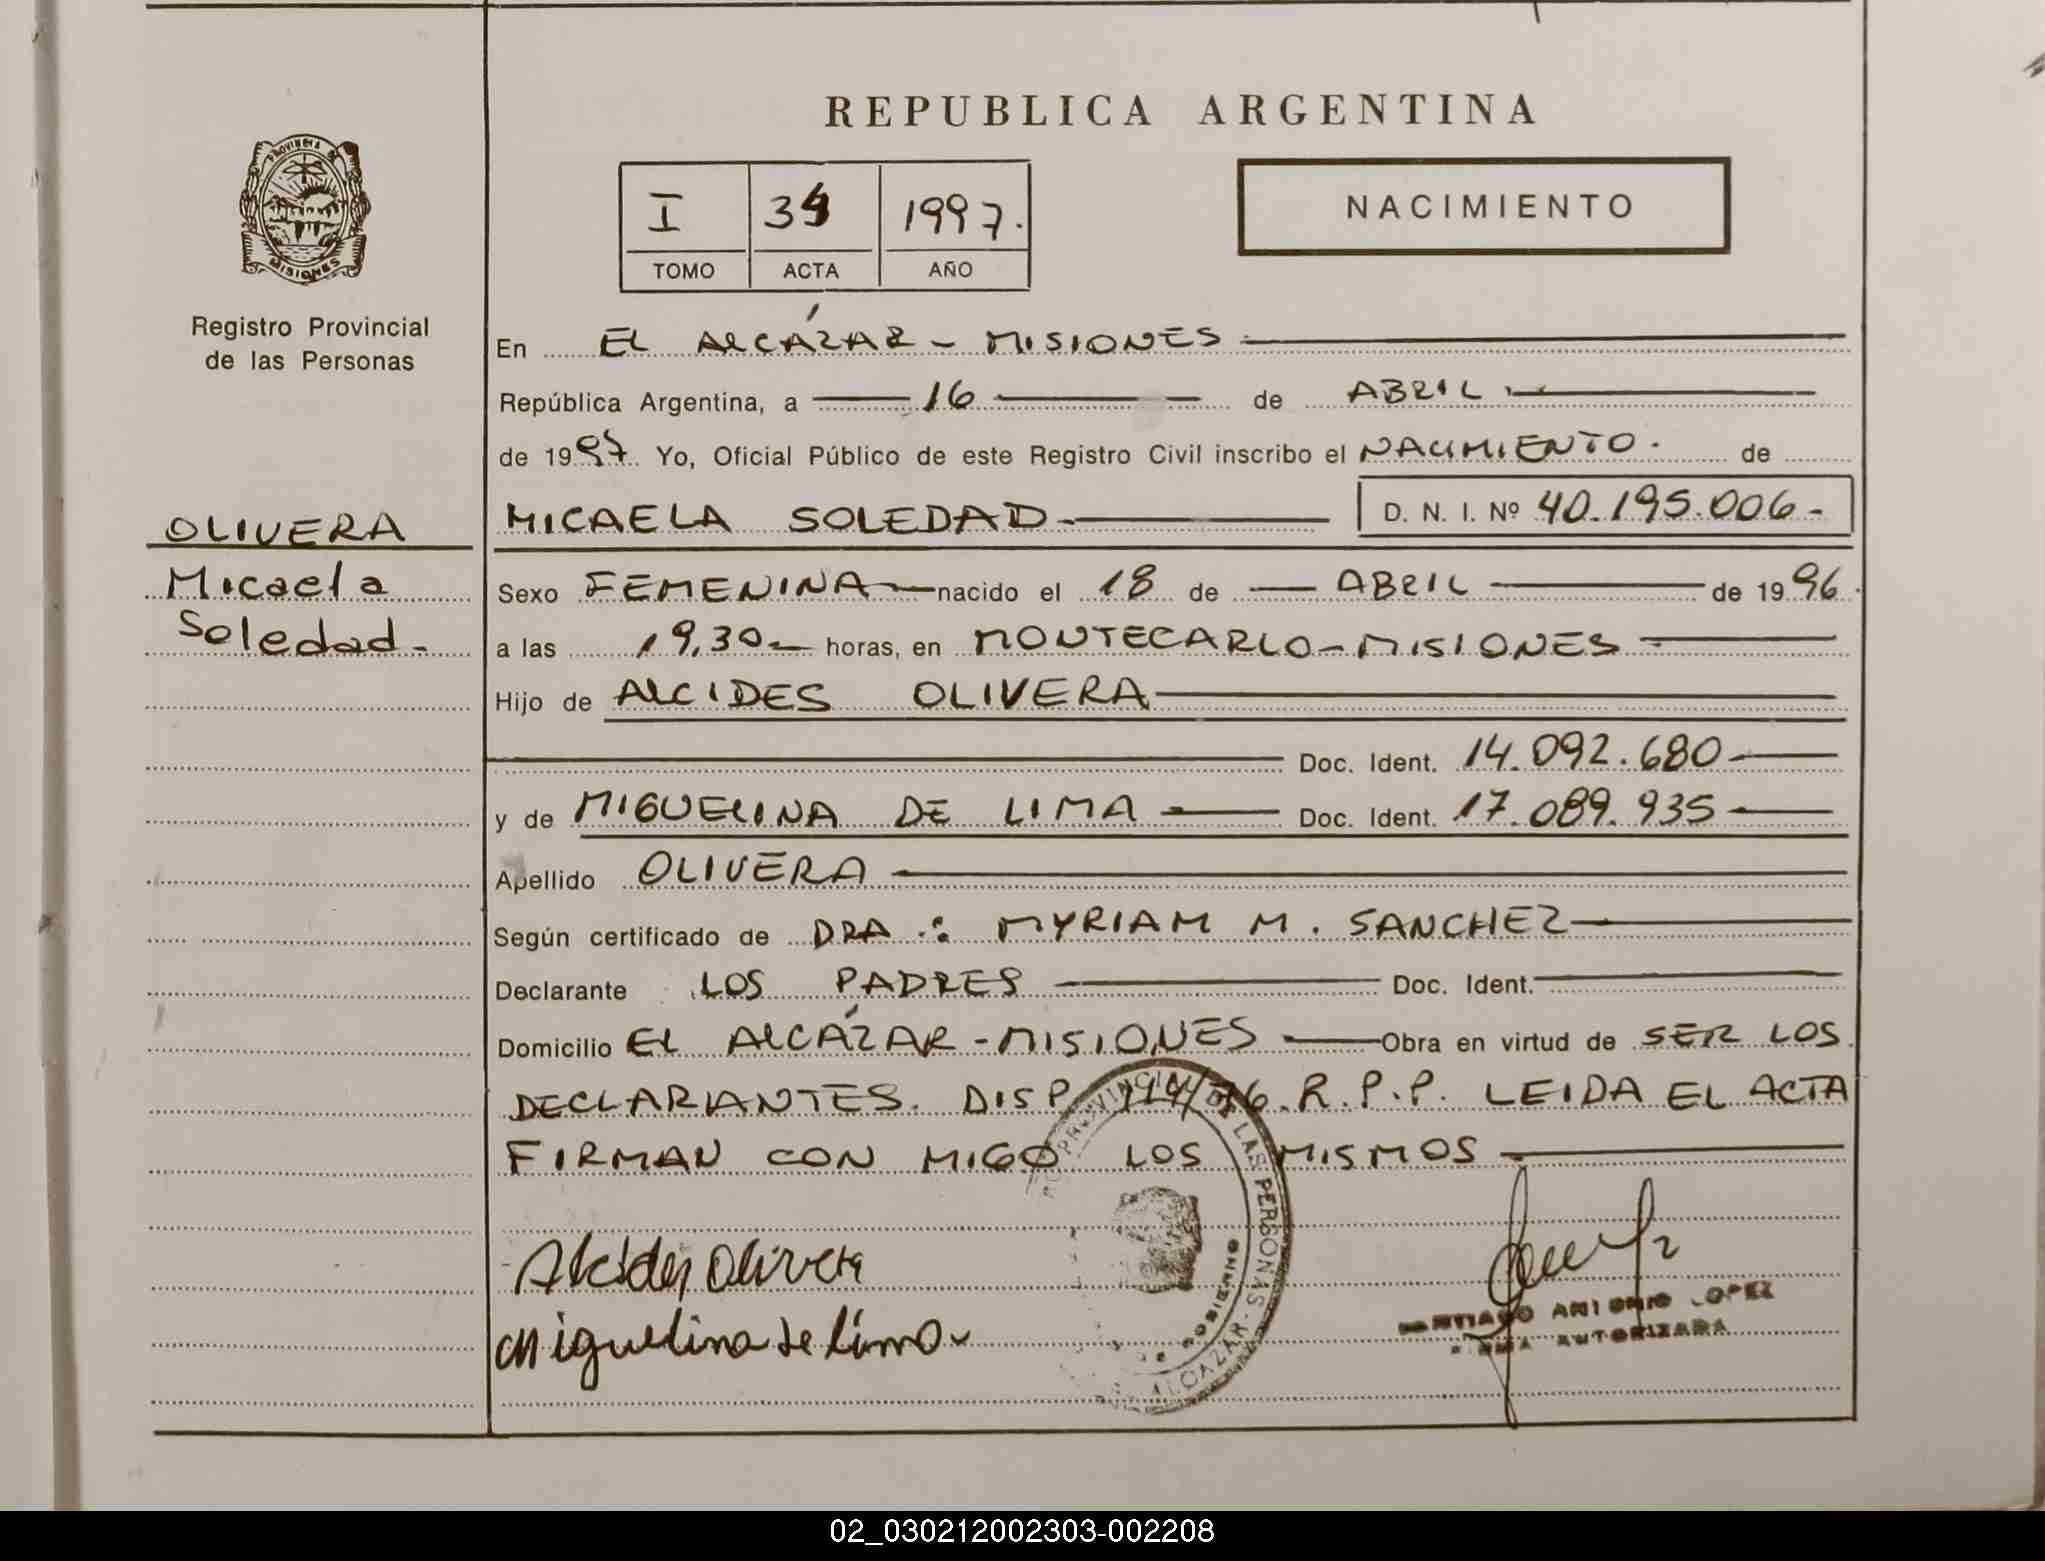 REPUBLICA ARGENTINA
PROVINCIA DE
MISIONES
Registro Provincial
de las Personas
I 34 1997.
TOMO ACTA AÑO
NACIMIENTO
En EL ALCÁZAR - MISIONES
República Argentina, a 16 de ABRIL
de 1997 Yo, Oficial Público de este Registro Civil inscribo el NACIMIENTO. de
OLIVERA
Micaela
Soledad.
MICAELA SOLEDAD D. N. I. Nº 40.195.006-
Sexo FEMENINA nacido el 18 de ABRIL de 1996.
a las 19,30 horas, en MONTECARLO-MISIONES
Hijo de ALCIDES OLIVERA
Doc. Ident. 14.092.680
y de MIGUELINA DE LIMA Doc. Ident. 17.089.935
Apellido OLIVERA
Según certificado de DRA: MYRIAM M. SANCHEZ
Declarante LOS PADRES Doc. Ident.
Domicilio EL ALCÁZAR - MISIONES Obra en virtud de SER LOS
DECLARANTES. DISP. /76. R.P.P. LEIDA EL ACTA
FIRMAN CON MIGO LOS MISMOS
Alcides Olivera
Miguelina de Lima
LAS PERSONAS - ALCAZAR
GOBIERNO
ANTONIO LOPEZ
AUTORIZADA
02_030212002303-002208